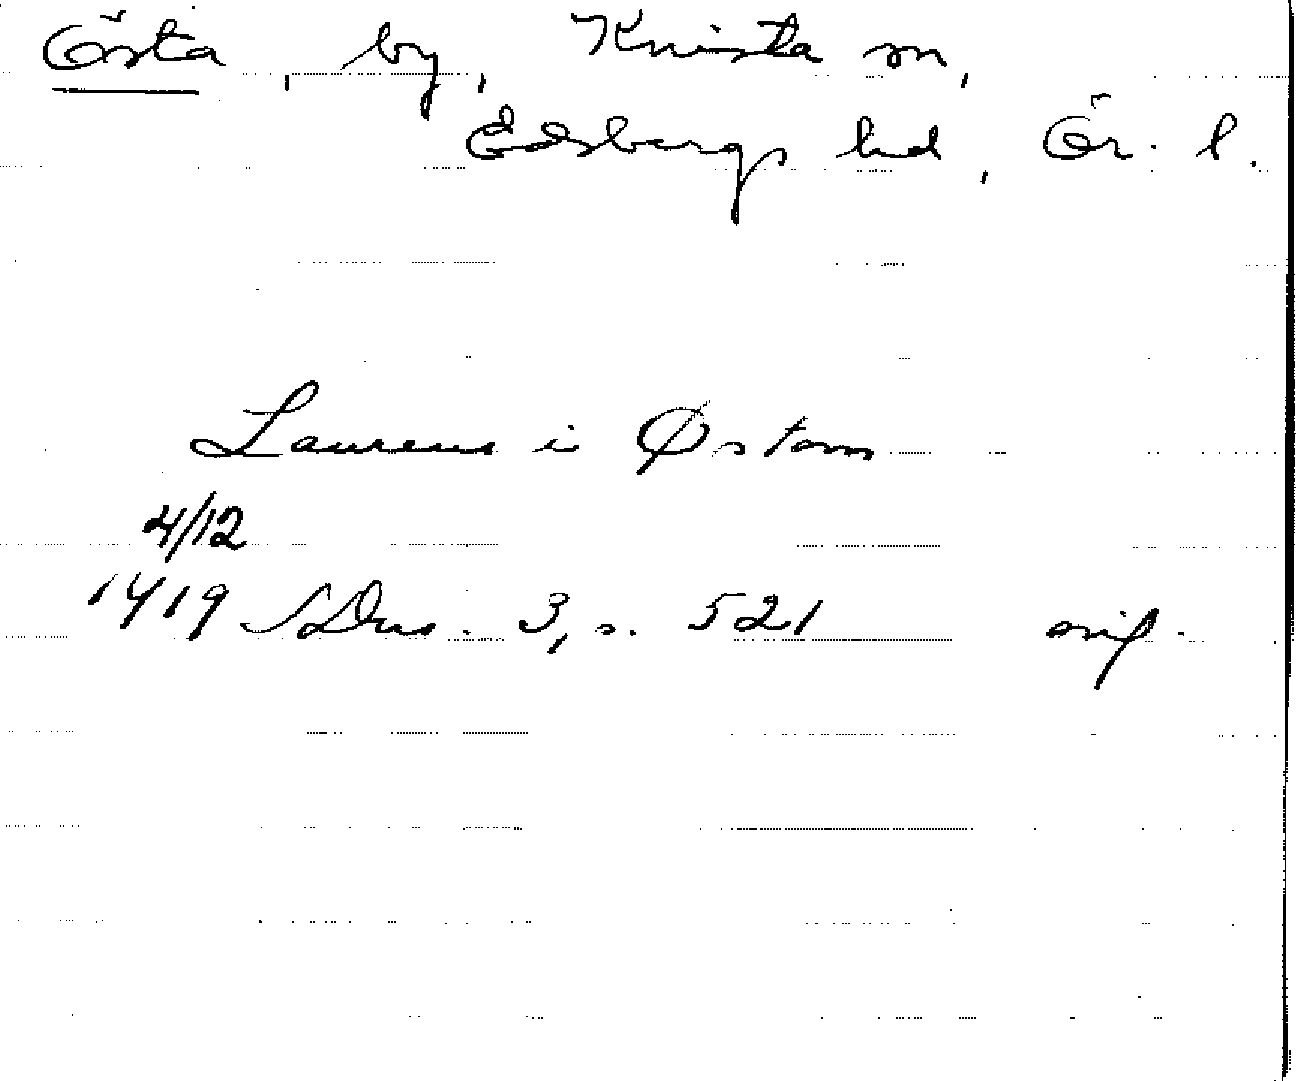 Östa, by, Knista sn,
Edsbergs hd, Ör. l.
Laurens i Østom
4/12
1419 SDns. 3, s. 521 orig.